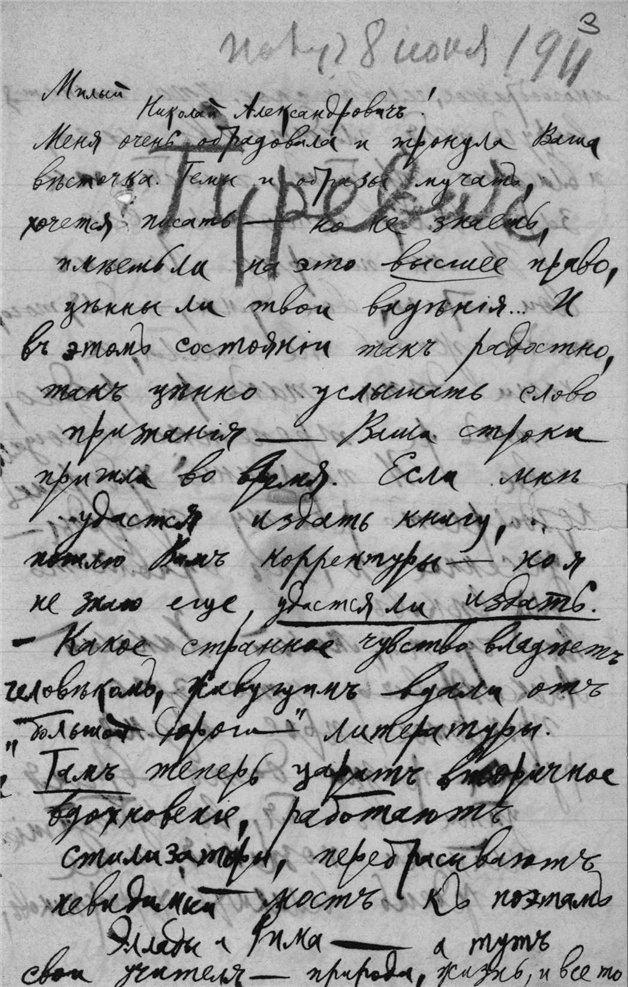 3
8 июня 1911
Милый
Николай Александровичъ!
Меня очень обрадовала и тронула Ваша
вѣсточка. Темы и образы мучатъ,
хочется писать — но не знаешь,
имѣешь ли на это высшее право,
цѣнны ли твои видѣнія... И
въ этомъ состояніи такъ радостно,
такъ цѣнно услышать слово
признанія — Ваши строки
пришли во время. Если мнѣ
удастся издать книгу,
пошлю Вамъ корректуры — но я
не знаю еще, удастся ли издать.
— Какое странное чувство владѣетъ
человѣкомъ, живущимъ вдали отъ
"большой дороги" литературы.
Тамъ теперь царитъ вторичное
вдохновеніе, работаютъ
стилизаторы, перебрасываютъ
невидимый мостъ къ поэтамъ
Эллады и Рима — а тутъ
свои учителя — природа, жизнь, и все то